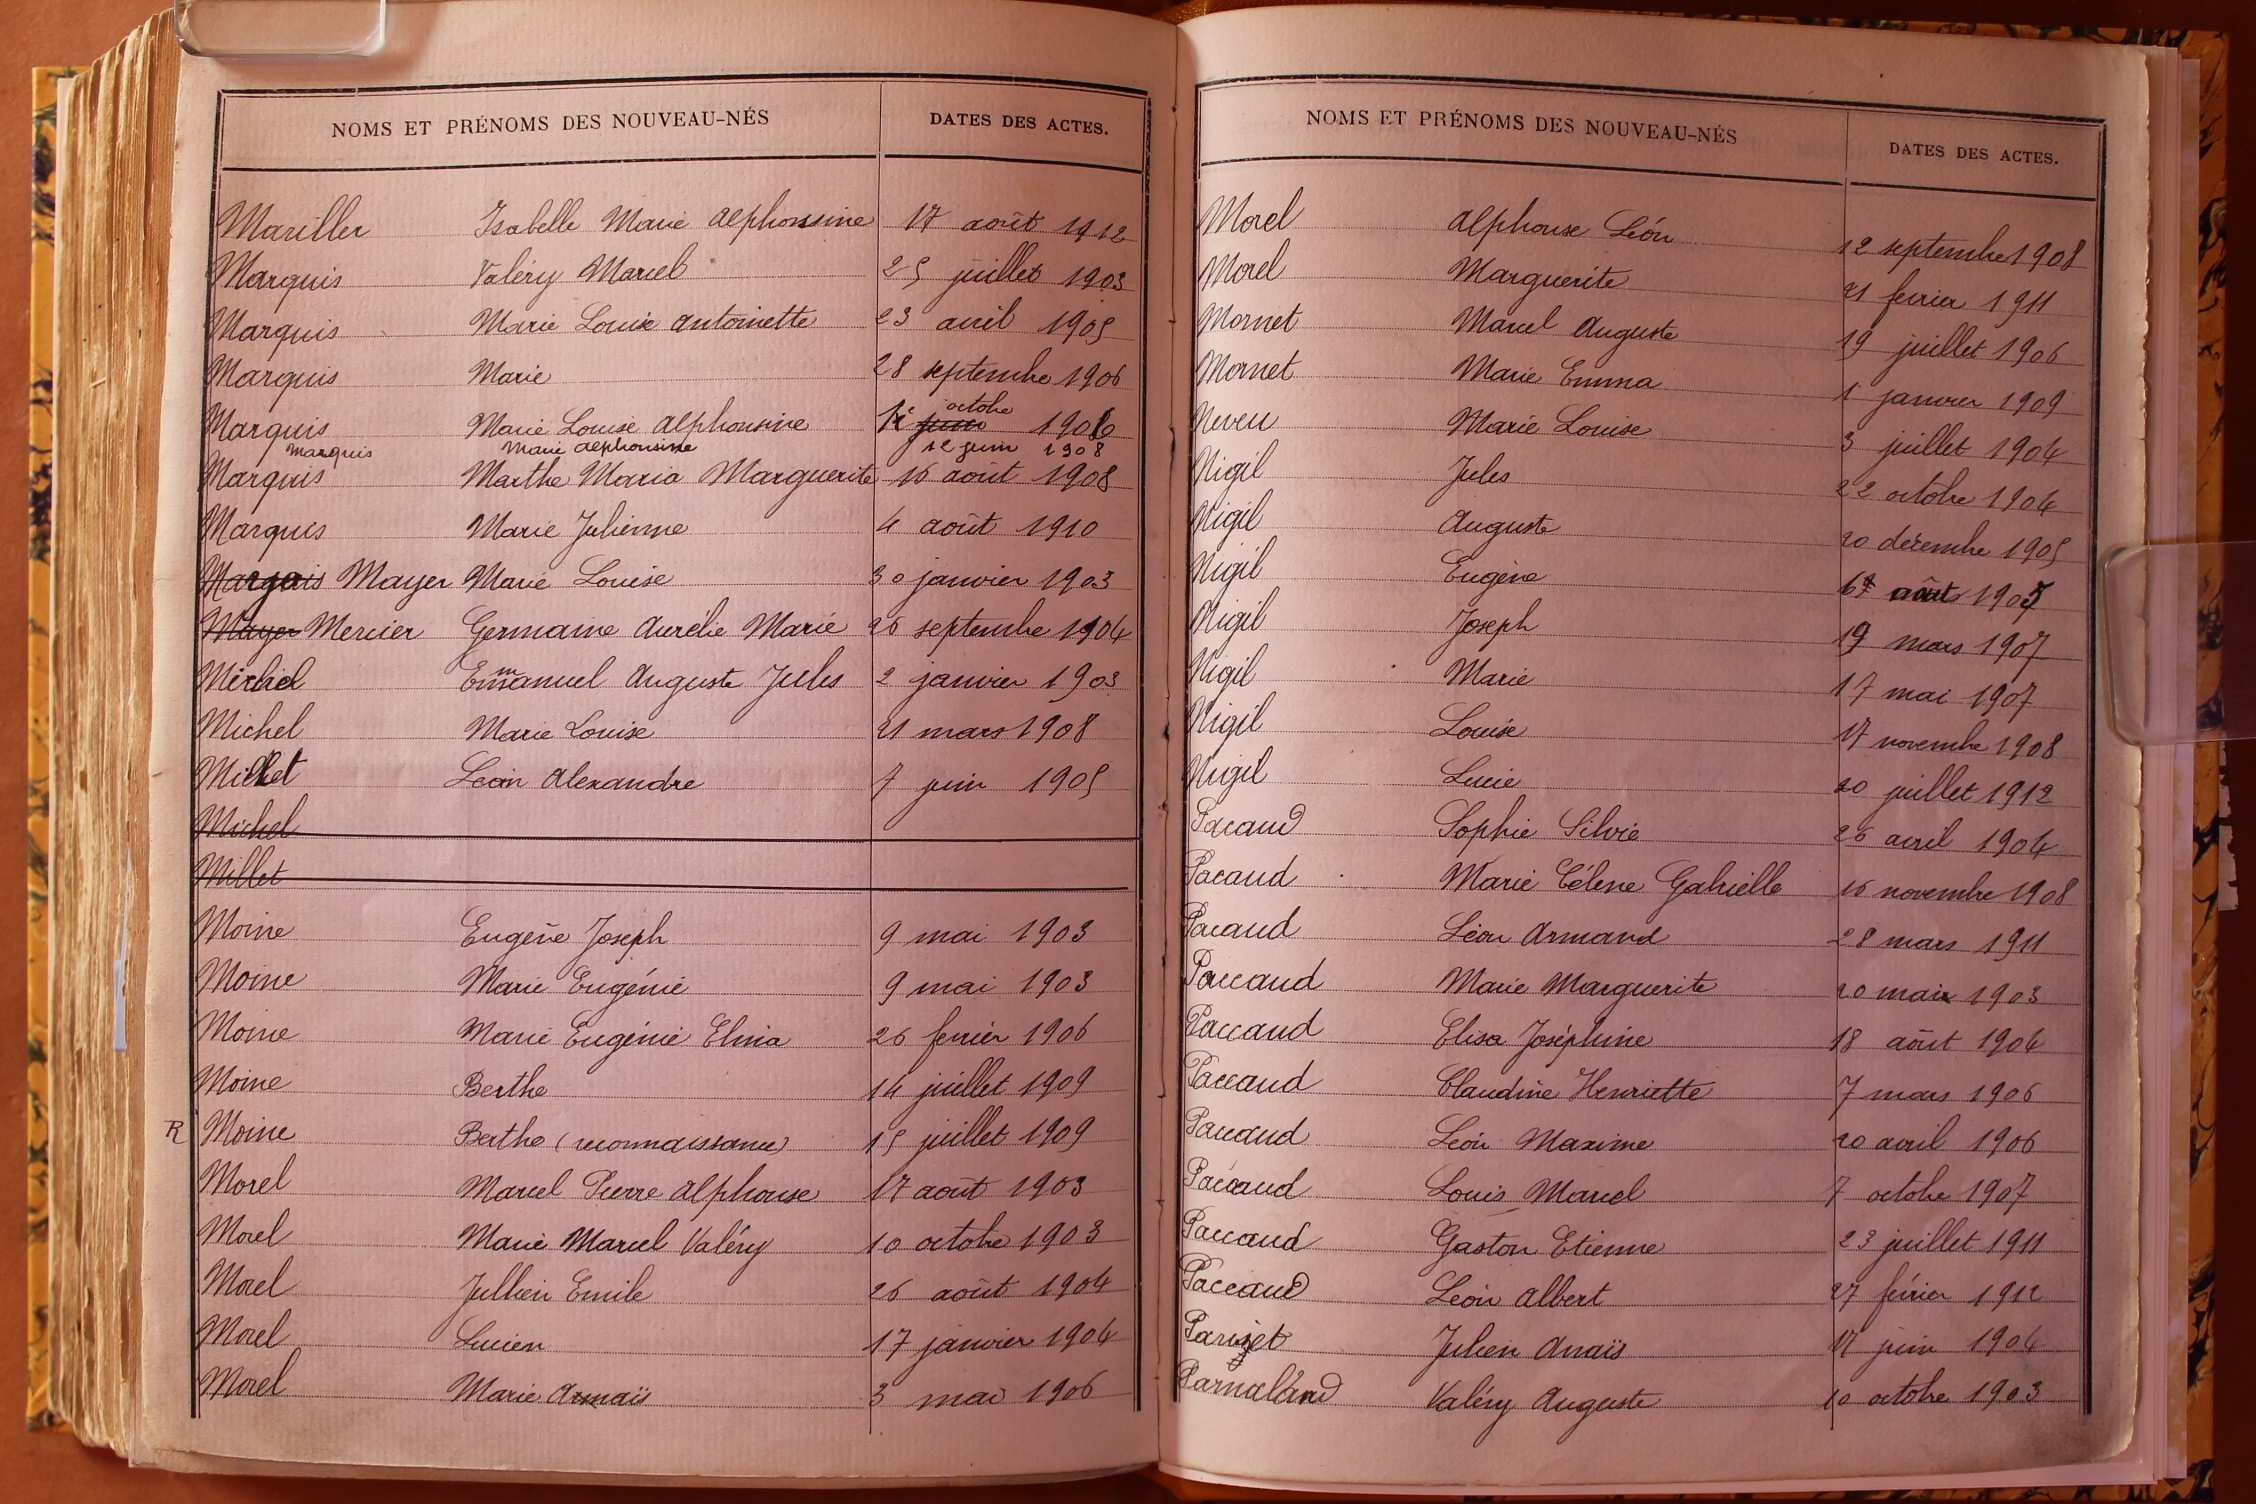 NOMS ET PRÉNOMS DES NOUVEAU-NÉS DATES DES ACTES.
Mariller Isabelle Marie Alphonsine 17 août 1912
Marquis Valéry Marcel 25 juillet 1903
Marquis Marie Louise Antoinette 23 avril 1905
Marquis Marie 28 septembre 1906
octobre
Marquis Marie Louise Alphonsine juin 1906
Marquis Marie Alphonsine 12 juin 1908
Marquis Marthe Maria Marguerite 16 août 1908
Marquis Marie Julienne 4 août 1910
Marquis Mayer Marie Louise 30 janvier 1903
Mayer Mercier Germaine Aurélie Marie 26 septembre 1904
Michel Emmanuel Auguste Jules 2 janvier 1903
Michel Marie Louise 21 mars 1908
Millet Léon Alexandre 7 juin 1905
Michel
Millet
Moine Eugène Joseph 9 mai 1903
Moine Marie Eugénie 9 mai 1903
Moine Marie Eugénie Elina 26 fevrier 1906
Moine Berthe 14 juillet 1909
R Moine Berthe (reconnaissance) 15 juillet 1909
Morel Marcel Pierre Alphonse 17 août 1903
Morel Marie Marcel Valéry 10 octobre 1903
Morel Jullien Emile 26 août 1904
Morel Lucien 17 janvier 1904
Morel Marie Anaïs 3 mai 1906
NOMS ET PRÉNOMS DES NOUVEAU-NÉS DATES DES ACTES.
Morel Alphonse Léon 12 septembre 1908
Morel Marguerite 21 fevrier 1911
Mornet Marcel Auguste 19 juillet 1906
Mornet Marie Emma 1 janvier 1909
Neveu Marie Louise 3 juillet 1904
Nigil Jules 22 octobre 1904
Nigil Auguste 20 décembre 1905
Nigil Eugène août
Nigil Joseph 19 mars 1907
Nigil Marie 17 mai 1907
Nigil Louise 17 novembre 1908
Nigil Lucie 20 juillet 1912
Pacaud Sophie Silvie 26 avril 1904
Pacaud Marie Célene Gabrielle 16 novembre 1908
Pacaud Léon Armand 28 mars 1911
Paccaud Marie Marguerite 20 mai 1903
Paccaud Elisa Joséphine 18 août 1904
Paccaud Claudine Henriette 7 mars 1906
Paccaud Léon Maxime 20 avril 1906
Paccaud Louis Marcel 7 octobre 1907
Paccaud Gaston Etienne 23 juillet 1911
Paccaud Léon Albert 27 février 1912
Parizet Julien Anaïs 17 juin 1904
Parnaland Valéry Auguste 10 octobre 1903